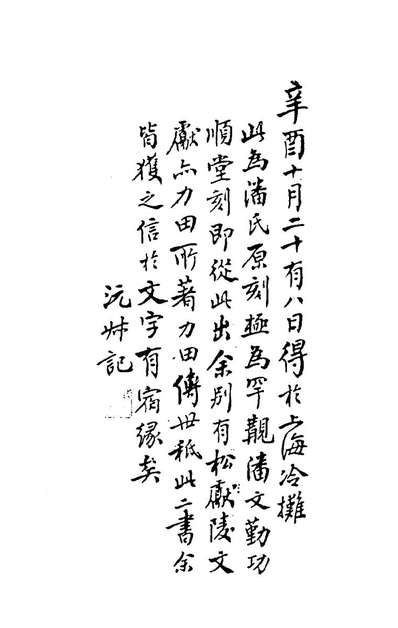 辛酉十月二十有八日得於上海冷攤
此為潘氏原刻極為罕覯潘文勤功
順堂刻即從此出余別有松獻陵文
獻亦力田所著力田傳世秪此二書余
皆獲之信於文字有宿緣矣
沅叔記